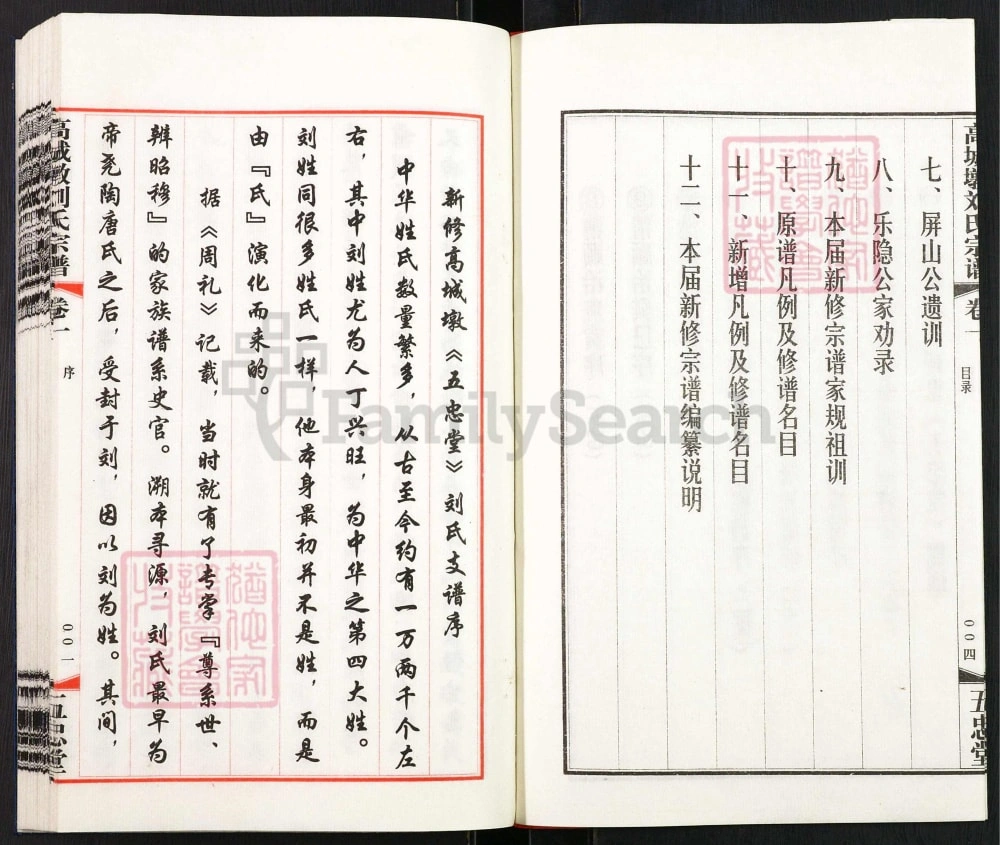 高城墩刘氏宗谱
卷一
目录
〇〇四
五忠堂
七、屏山公遗训
八、乐隐公家劝录
九、本届新修宗谱家规祖训
十、原谱凡例及修谱名目
十一、新增凡例及修谱名目
十二、本届新修宗谱编纂说明
新修高城墩《五忠堂》刘氏支谱序
中华姓氏数量繁多，从古至今约有一万两千个左
右，其中刘姓尤为人丁兴旺，为中华之第四大姓。
刘姓同很多姓氏一样，他本身最初并不是姓，而是
由『氏』演化而来的。
据《周礼》记载，当时就有了专掌『尊系世、
辨昭穆』的家族谱系史官。溯本寻源，刘氏最早为
帝尧陶唐氏之后，受封于刘，因以刘为姓。其间，
高城墩刘氏宗谱
卷一
序
〇〇一
五忠堂
FamilySearch